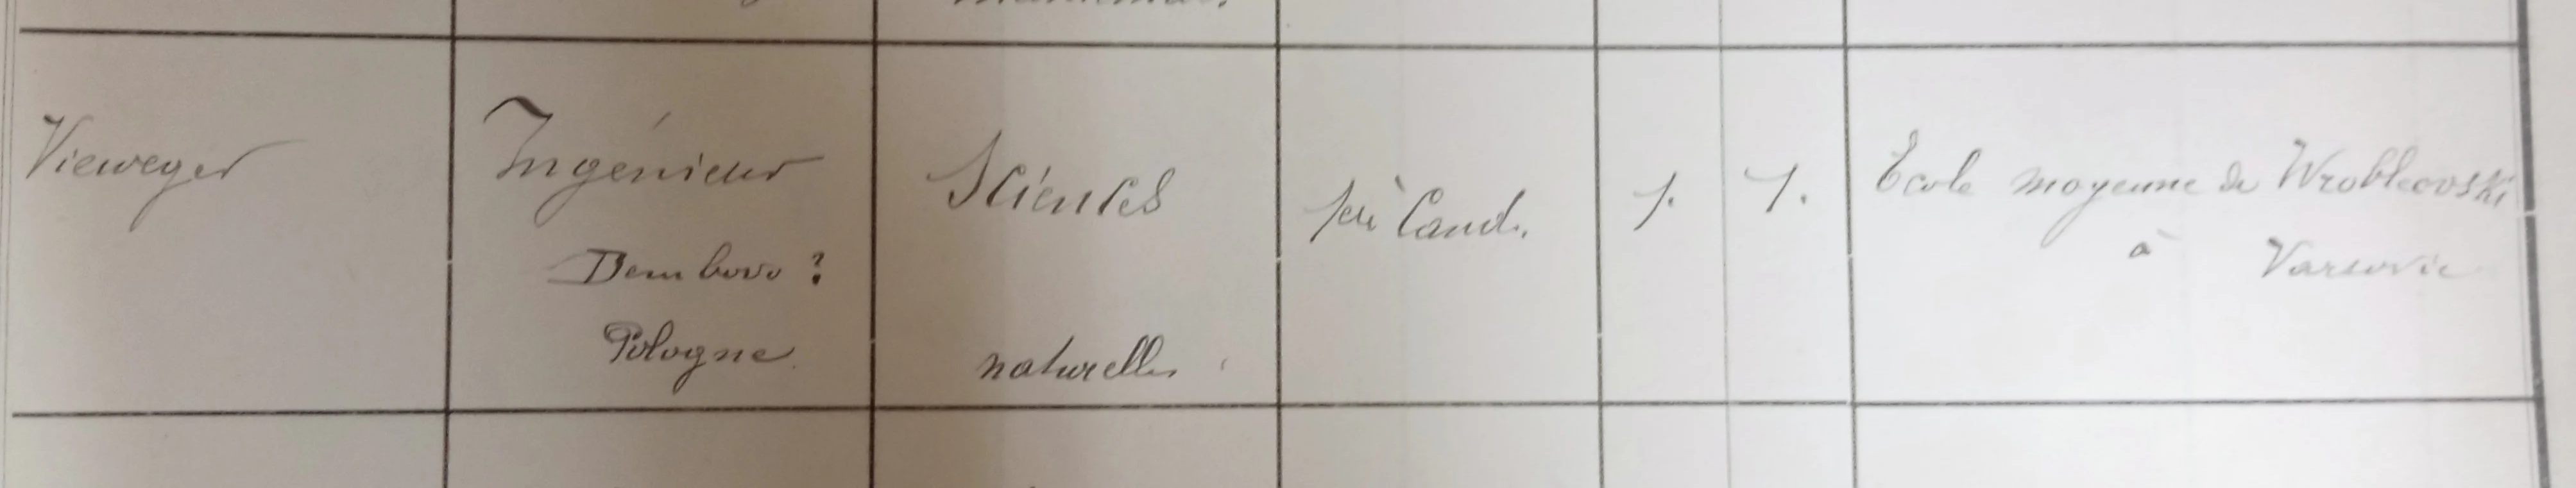 Vieweger
Ingénieur
Dembovo ?
Pologne
Sciences
naturelles
1ère Cand.
1.
1.
École moyenne de Wroblewski
à Varsovie